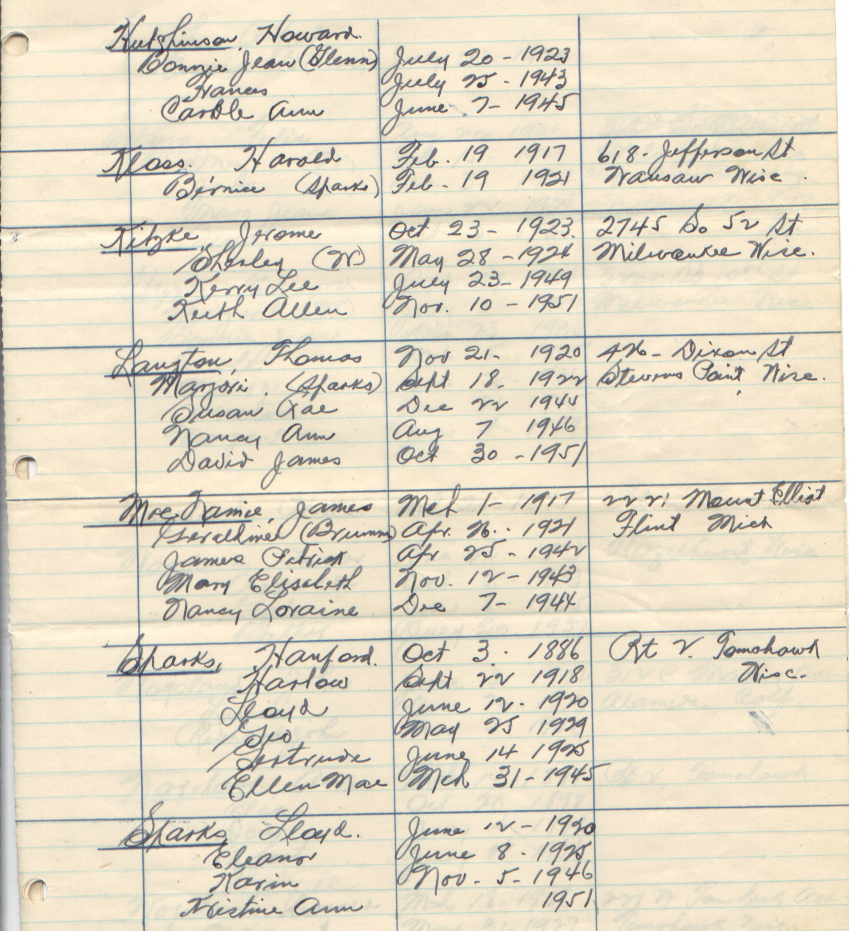 Hutchinson, Howard.
Bonnie Jean (Glenn) July 20 - 1923
Frances July 25 - 1943
Carole Ann June 7 - 1945
Kloss. Harold Feb. 19 1917 618 - Jefferson St
Bernice (Sparks) Feb. 19 1921 Wausaw Wisc.
Kitzke Jerome Oct 23 - 1923. 2745 So 52 St
Shirley (W) May 28 - 1924 Milwaukee Wisc.
Kerry Lee July 23 - 1949
Keith Allen Nov. 10 - 1951
Langton, Thomas Nov 21 - 1920 426 - Dixon St
Marjorie. (Sparks) Sept 18. 1922 Stevens Point, Wisc.
Susan Rae Dec 22 1944
Nancy Ann Aug 7 1946
David James Oct 30 - 1951
James Mch 1 - 1917 Mount Elliot
Geraldine (Brunn) Apr. 26. - 1921 Flint Mich
James Patrick Apr 25 - 1942
Mary Elisabeth Nov. 12 - 1943
Nancy Loraine Dec 7 - 1944
Sparks, Hanford. Oct 3. 1886 Rt 2. Tomohawk
Harlow Sept 22 1918 Wisc.
Lloyd June 12 - 1920
Geo May 25 1929
Gertrude June 14 1925
Ellen Mae Mch 31 - 1945
Sparks, Lloyd. June 12 - 1920
Eleanor June 8 - 1925
Karin Nov. 5 - 1946
Kristine Ann 1951